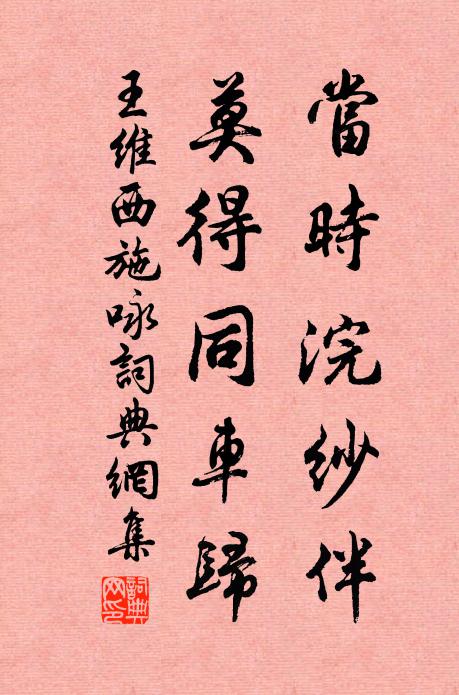 當時浣紗伴
莫得同車歸
王維西施咏詞典網集
詞典網印